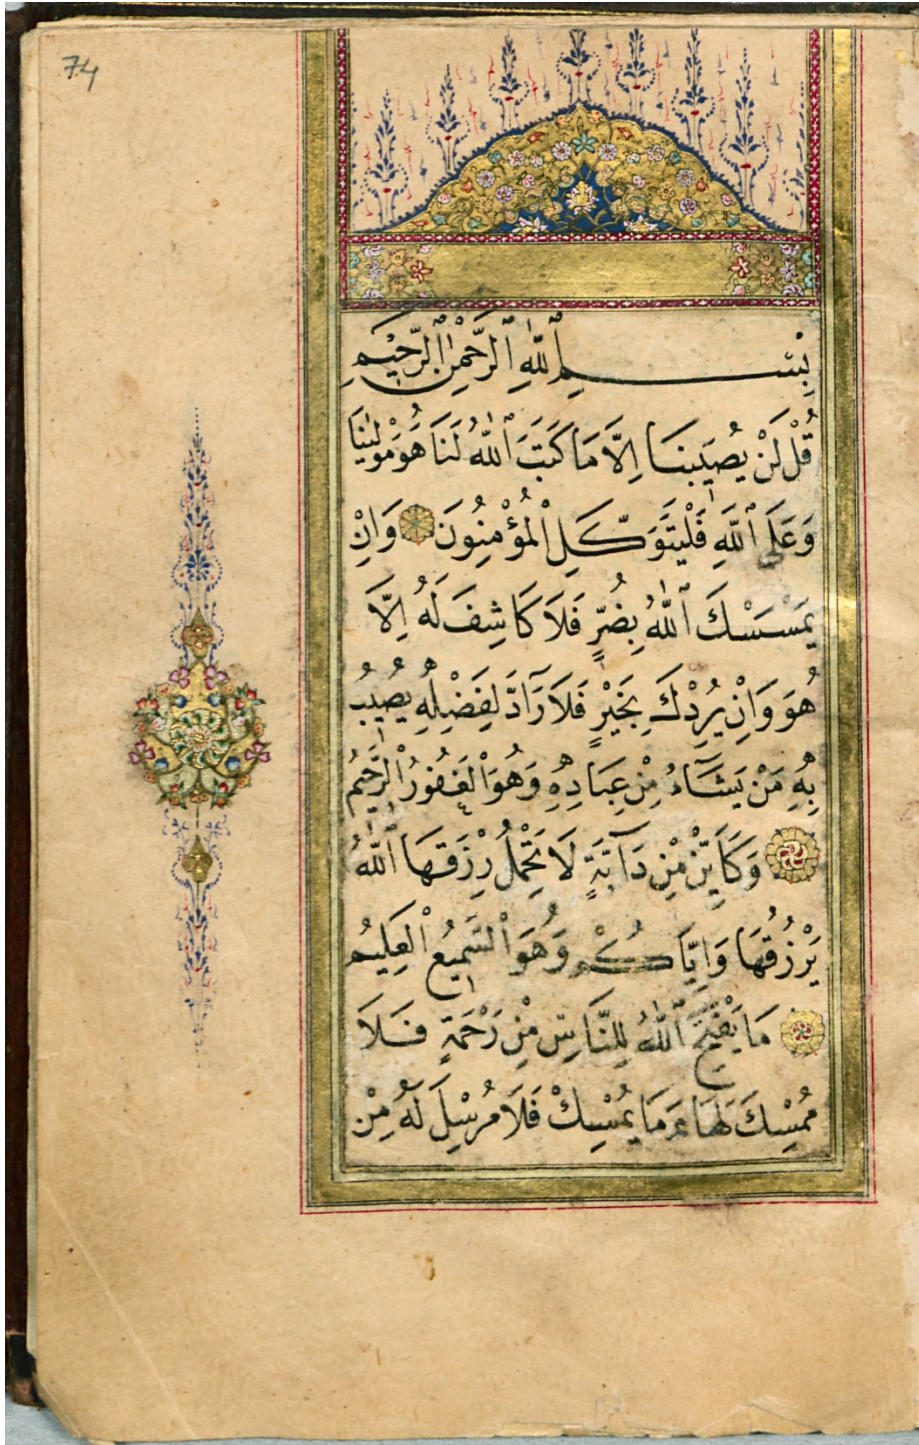 74
بِسْمِ اللّٰهِ الرَّحْمٰنِ الرَّحِيْمِ
قُلْ لَنْ يُصِيبَنَا اِلَّا مَا كَتَبَ اللّٰهُ لَنَا هُوَ مَوْلٰينَا
وَعَلَى اللّٰهِ فَلْيَتَوَكَّلِ الْمُؤْمِنُونَ وَاِنْ
يَمْسَسْكَ اللّٰهُ بِضُرٍّ فَلَا كَاشِفَ لَهُ اِلَّا
هُوَ وَاِنْ يُرِدْكَ بِخَيْرٍ فَلَا رَآدَّ لِفَضْلِهِ يُصِيبُ
بِهِ مَنْ يَشَآءُ مِنْ عِبَادِهِ وَهُوَ الْغَفُورُ الرَّحِيمُ
وَكَاَيِّنْ مِنْ دَآبَّةٍ لَا تَحْمِلُ رِزْقَهَا اللّٰهُ
يَرْزُقُهَا وَاِيَّاكُمْ وَهُوَ السَّمِيعُ الْعَلِيمُ
مَا يَفْتَحِ اللّٰهُ لِلنَّاسِ مِنْ رَحْمَةٍ فَلَا
مُمْسِكَ لَهَا وَمَا يُمْسِكْ فَلَا مُرْسِلَ لَهُ مِنْ